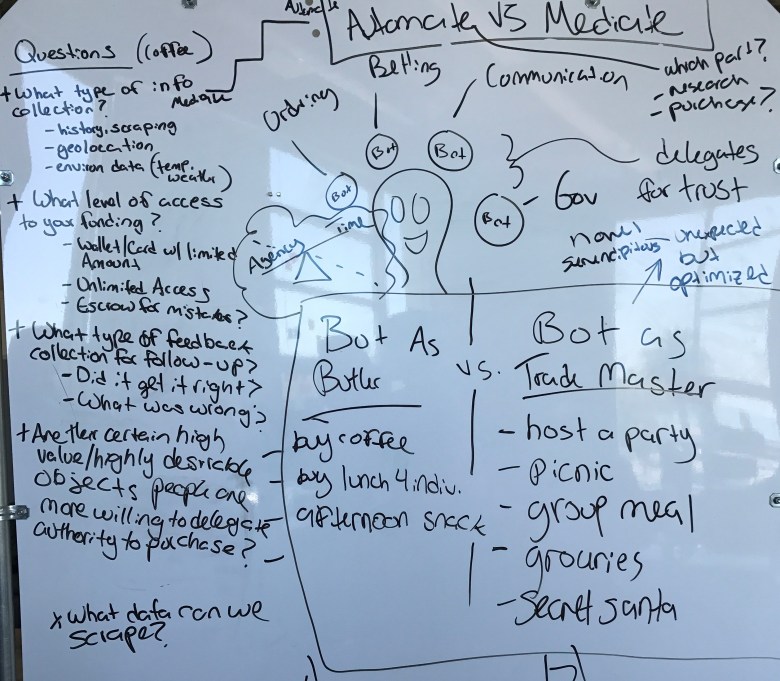 Automate
Automate vs Mediate
Questions (coffee)
+ What type of info
Mediate
collection?
- history, scraping
- geolocation
- environ data (temp.
weather)
+ What level of access
to your funding?
- Wallet/Card w/ limited
Amount
- Unlimited Access
- Escrow for mistakes?
+ What type of feedback
collection for follow-up?
- Did it get it right?
- What was wrong?
+ Are their certain high
value/highly desirable
objects people are
more willing to delegate
authority to purchase?
x What data can we
scrape?
Ordering
Betting
Communication
which part?
- research
- purchase?
Bot
Bot
Bot
Bot
- Gov
delegates
for trust
Agency
Time
novel
serendipitous
- unexpected
but
optimized
Bot As
Butler
- by coffee
- by lunch 4 indiv.
- afternoon snack
-
vs.
Bot as
Trade Master
- host a party
- picnic
- group meal
- grouries
- Secret santa